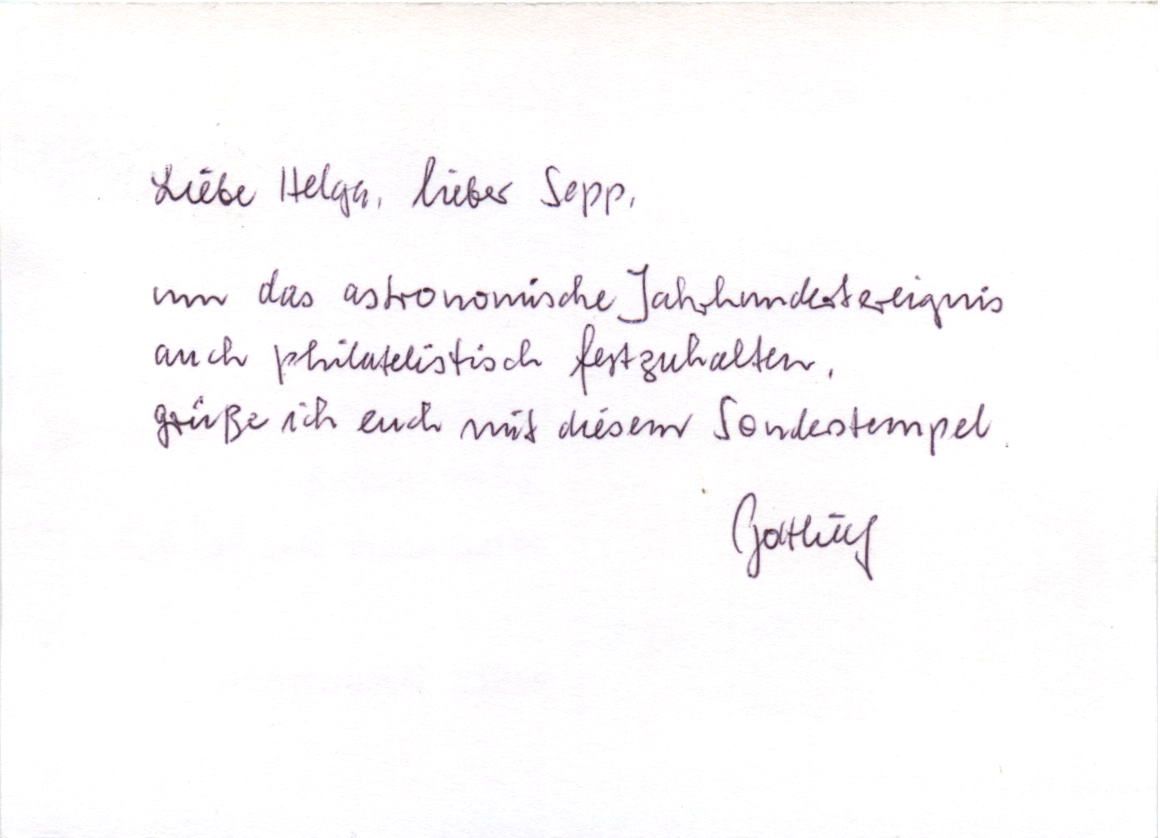 Liebe Helga, lieber Sepp,
um das astronomische Jahrhundertereignis
auch philatelistisch festzuhalten,
grüße ich euch mit diesem Sonderstempel.